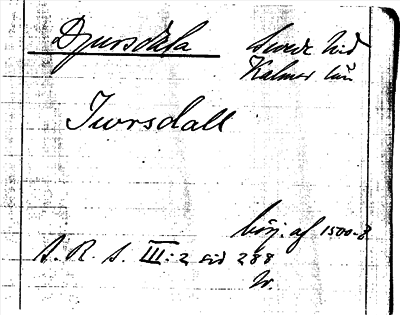 Djursdala Sevede hd
Kalmar län
Iwrsdall
börj. af 1500-t
A. R. S. III: 2 sid 288